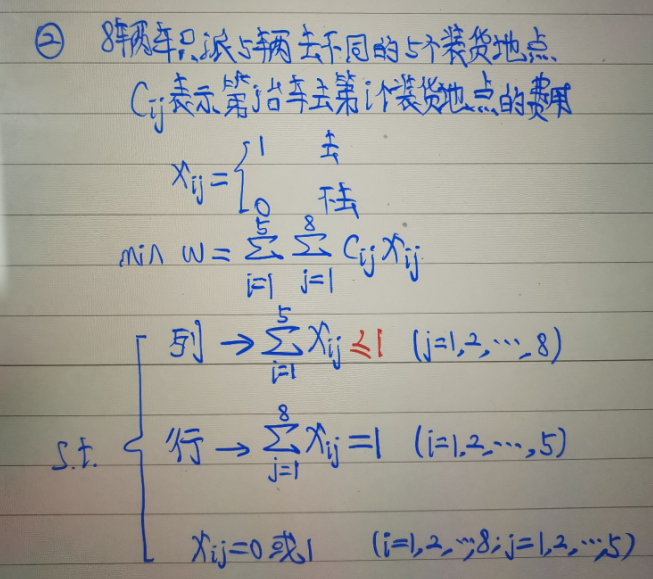 ② 8辆车只派5辆去不同的5个装货地点
Cij表示第j台车去第i个装货地点的费用
xij = { 1 去
0 不去
min w = ∑_{i=1}^{5} ∑_{j=1}^{8} Cij xij
s.t. { 列 → ∑_{i=1}^{5} xij ≤ 1 (j=1,2,…,8)
行 → ∑_{j=1}^{8} xij = 1 (i=1,2,…,5)
xij=0或1 (i=1,2,…,8; j=1,2,…,5)